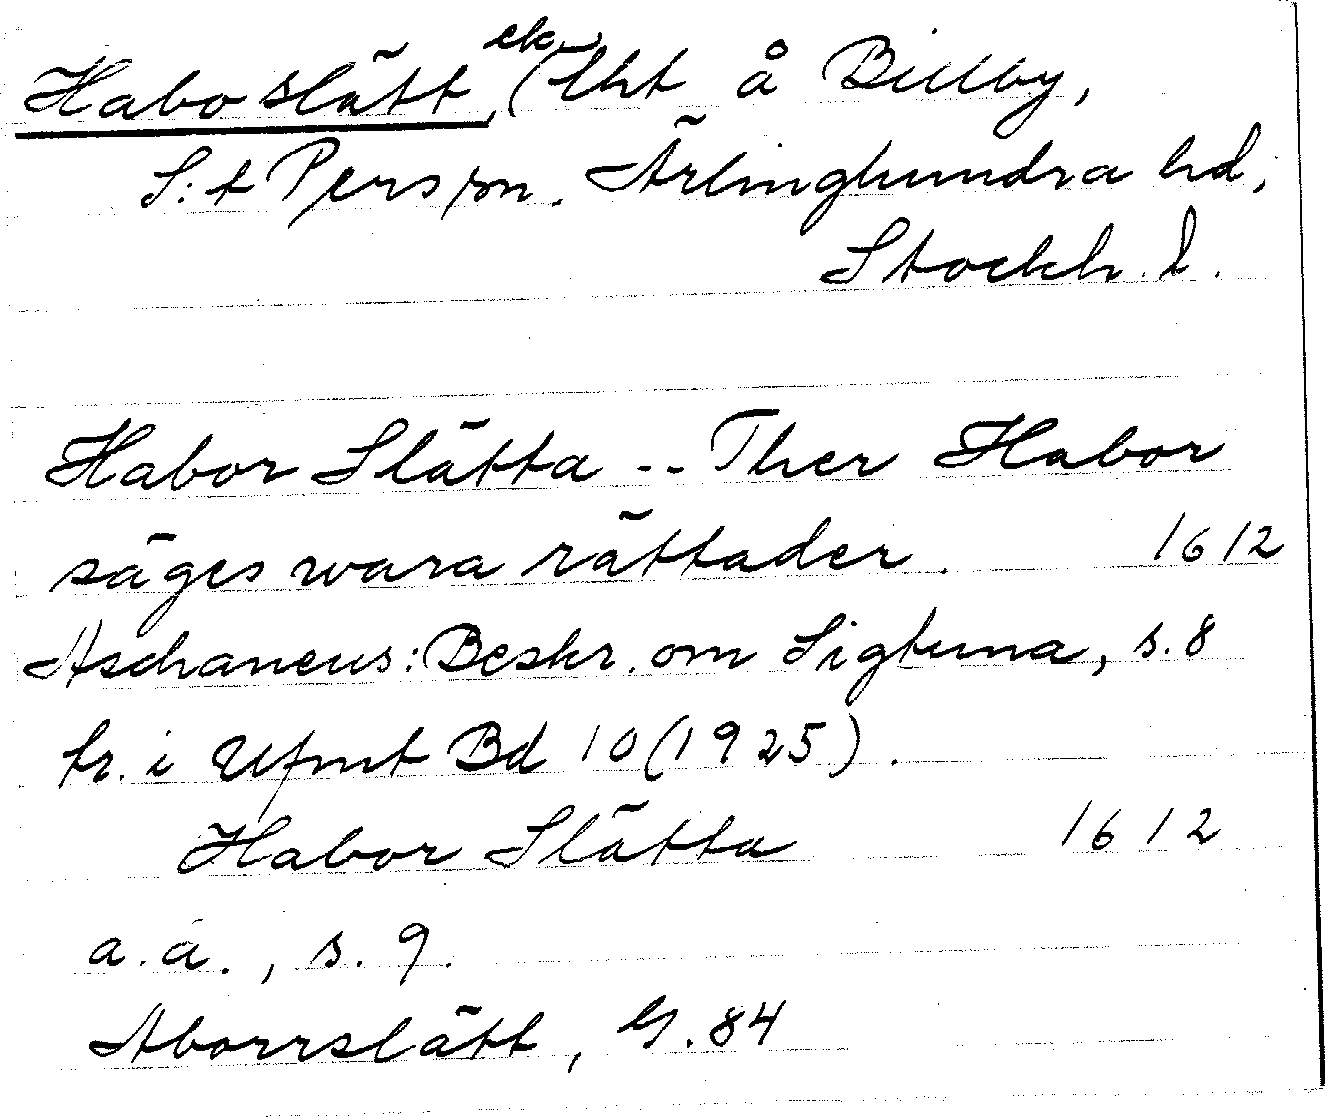 Haboslätt, ek (Lht å Billby,
S:t Pers sn. Ärlinghundra hd,
Stockh. l.
Habor Slätta -- Ther Habor
säges wara rättader. 1612
Aschaneus: Beskr. om Sigtuna, s. 8
tr. i Ufmt Bd 10 (1925).
Habor Slätta 1612
a.a., s. 9.
Aborrslätt, G. 84